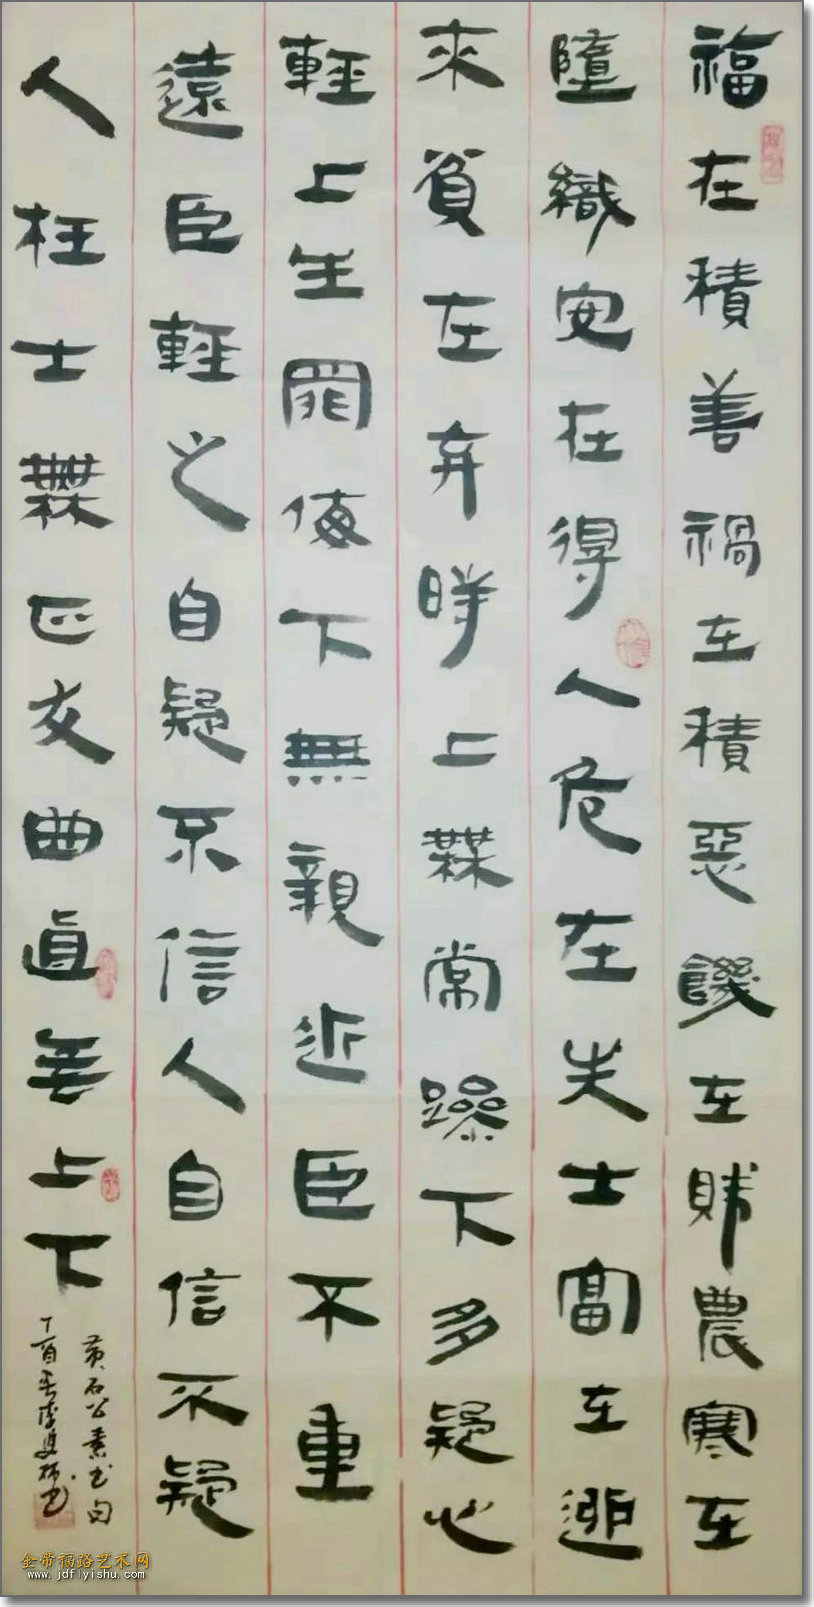 福在積善禍在積惡饑在賤農寒在
墮織安在得人危在失士富在迎
來貧在弃時上無常躁下多疑心
輕上生罪侮下無親近臣不重
遠臣輕之自疑不信人自信不疑
人枉士無正友曲直無上下
黄石公素书句
丁酉
书
金带福路艺术网
www.jdflyishu.com